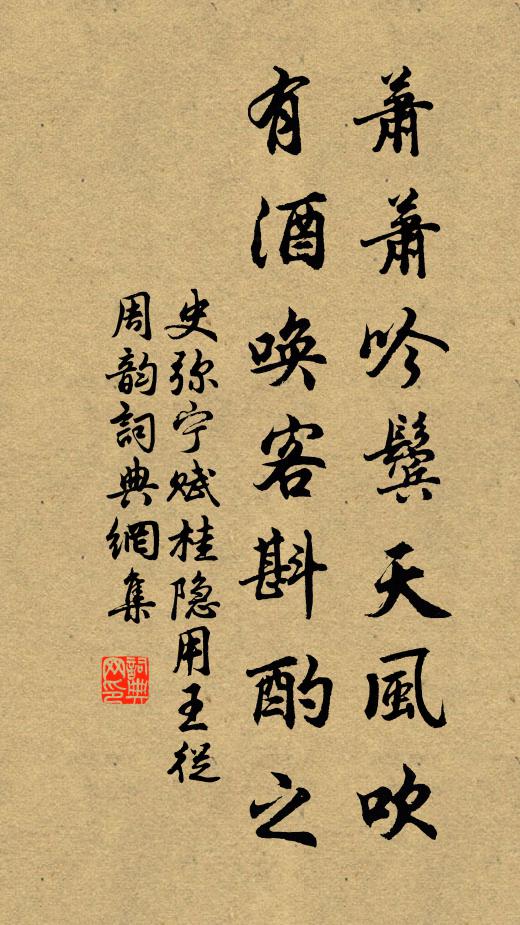 蕭蕭吟鬢天風吹
有酒喚客斟酌之
史弥宁赋桂隐用王從
周韵詞典網集
詞典
网印